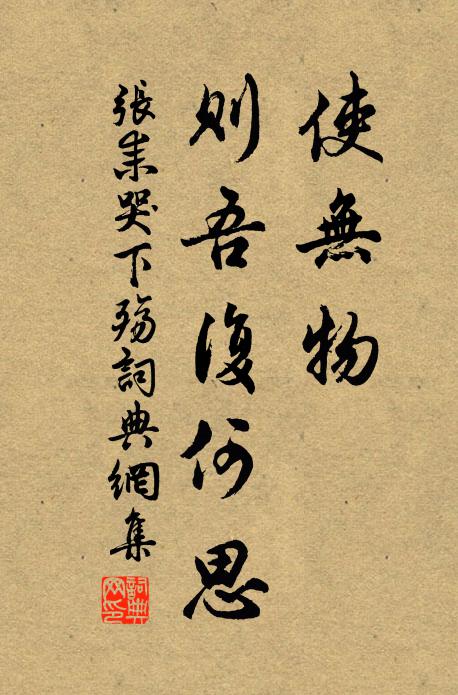 使無物
則吾復何思
張耒哭下殤詞典網集
詞典网印